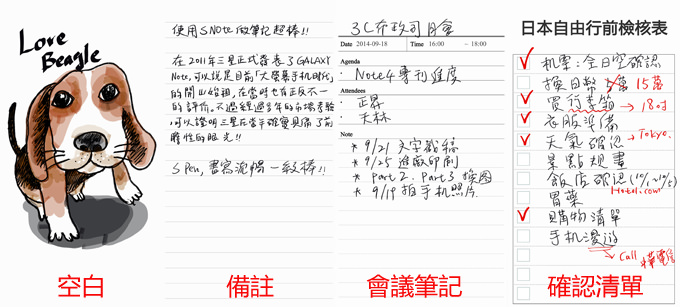 Love
Beagle
空白
使用SNote做筆記超棒!!
在2011年三星正式發表了GALAXY
Note,可以說是目前「大螢幕手机時代」
的開山始祖,在當時也有正反不一
的評價,不過經過多年的市場考驗
,可以證明三星在當年確實具備了前
瞻性的眼光!!
S Pen,書寫流暢一級棒!!
備註
3C 市政司 月會
Date 2014-09-18 Time 16:00 ~ 18:00
Agenda
· Note4專刊進度
Attendees
· 正昇
· 天林
Note
* 9/21 文字截稿
* 9/25 進廠印刷
* Part 2、Part 3 換圖
* 9/19 拍手机照片
會議筆記
日本自由行前檢核表
机票:全日空確認
換日幣 5萬 15萬
買行李箱 → 18吋
衣服準備
天氣確認 → Tokyo.
景點規畫
飯店確認(10/1~10/5)
Hotel.com
胃藥
購物清單
手机漫遊
Call 中華電信
確認清單